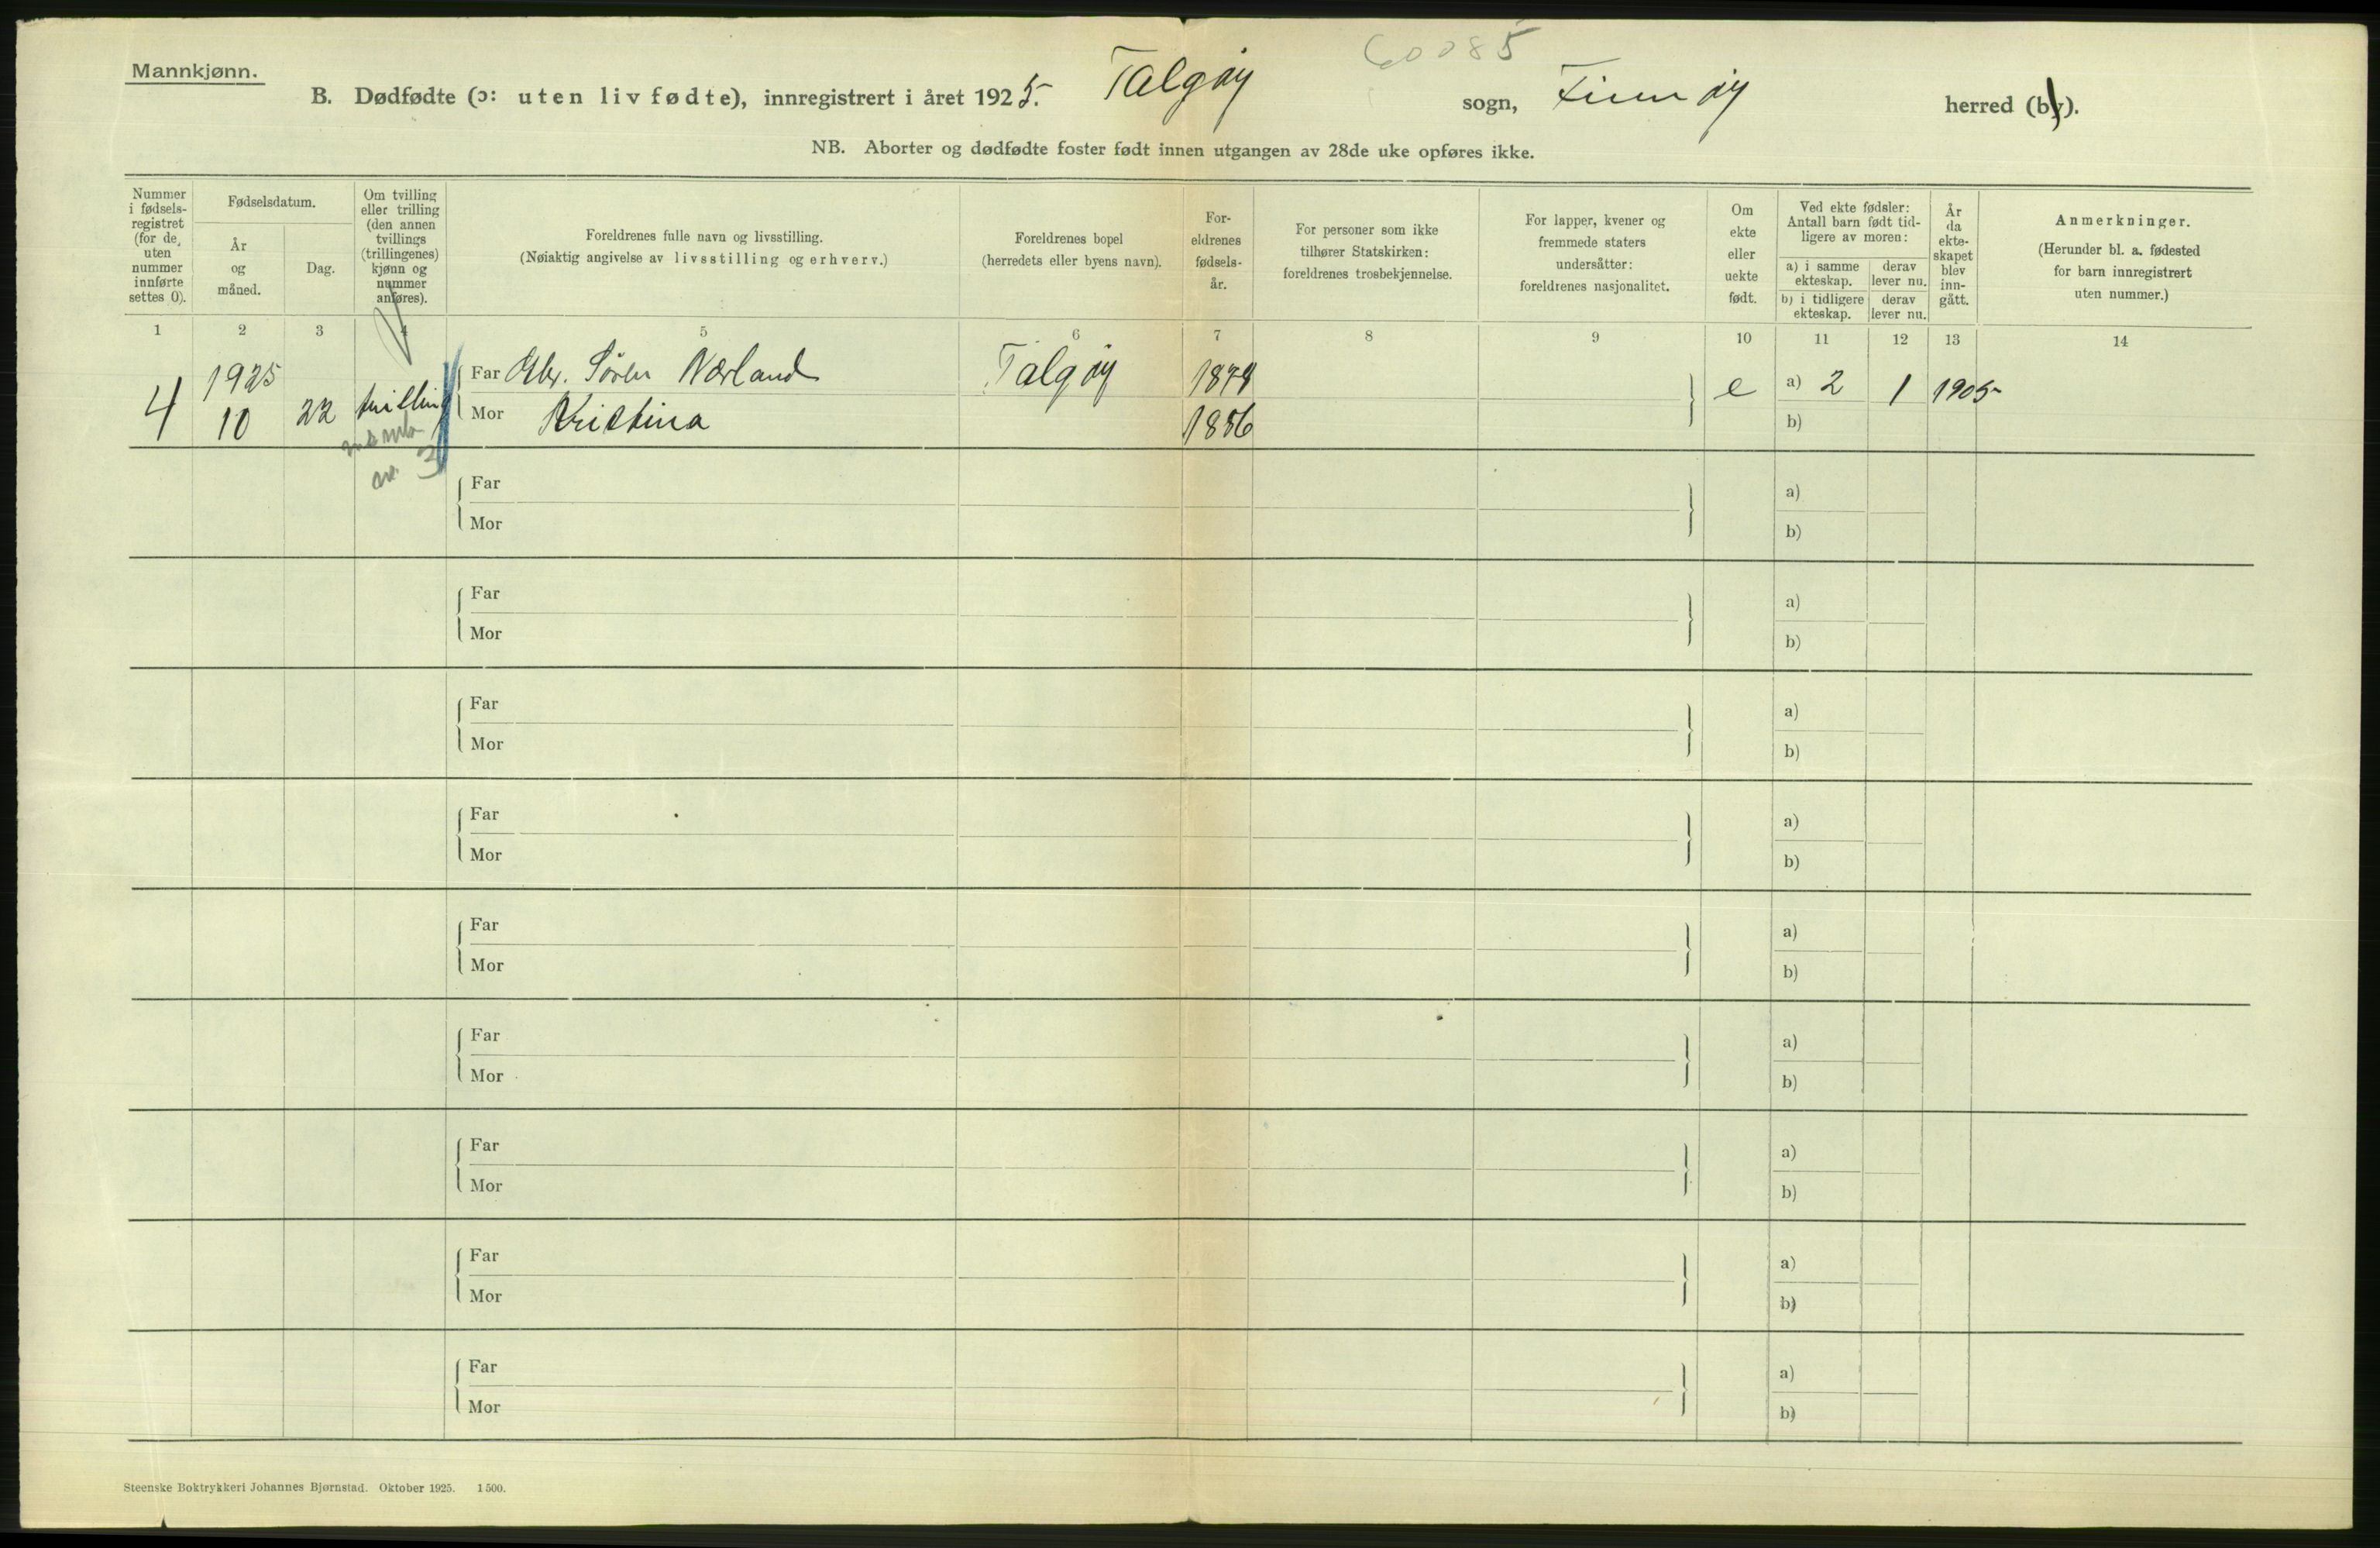 60085
Mannkjønn.
B. Dødfødte (ɔ: uten liv fødte), innregistrert i året 1925. Talgøy sogn, Finnøy herred (by).
NB. Aborter og dødfødte foster født innen utgangen av 28de uke opføres ikke.
Nummer
i fødsels-
registret
(for de
uten
nummer
innførte
settes 0).
Fødselsdatum.
År
og
måned.
Dag.
Om tvilling
eller trilling
(den annen
tvillings
(trillingenes)
kjønn og
nummer
anføres).
Foreldrenes fulle navn og livsstilling.
(Nøiaktig angivelse av livsstilling og erhverv.)
Foreldrenes bopel
(herredets eller byens navn).
For-
eldrenes
fødsels-
år.
For personer som ikke
tilhører Statskirken:
foreldrenes trosbekjennelse.
For lapper, kvener og
fremmede staters
undersåtter:
foreldrenes nasjonalitet.
Om
ekte
eller
uekte
født.
Ved ekte fødsler:
Antall barn født tid-
ligere av moren:
a) i samme
ekteskap.
derav
lever nu.
b) i tidligere
ekteskap.
derav
lever nu.
År
da
ekte-
skapet
blev
inn-
gått.
Anmerkninger.
(Herunder bl. a. fødested
for barn innregistrert
uten nummer.)
1 2 3 4 5 6 7 8 9 10 11 12 13 14
4 1925 10 22 tvilling
Far Søren Nærland Talgøy 1879 e a) 2 1 1905
Mor Kristina 1886 b)
3
Far a)
Mor b)
Far a)
Mor b)
Far a)
Mor b)
Far a)
Mor b)
Far a)
Mor b)
Far a)
Mor b)
Far a)
Mor b)
Far a)
Mor b)
Far a)
Mor b)
Steenske Boktrykkeri Johannes Bjørnstad. Oktober 1925. 1500.